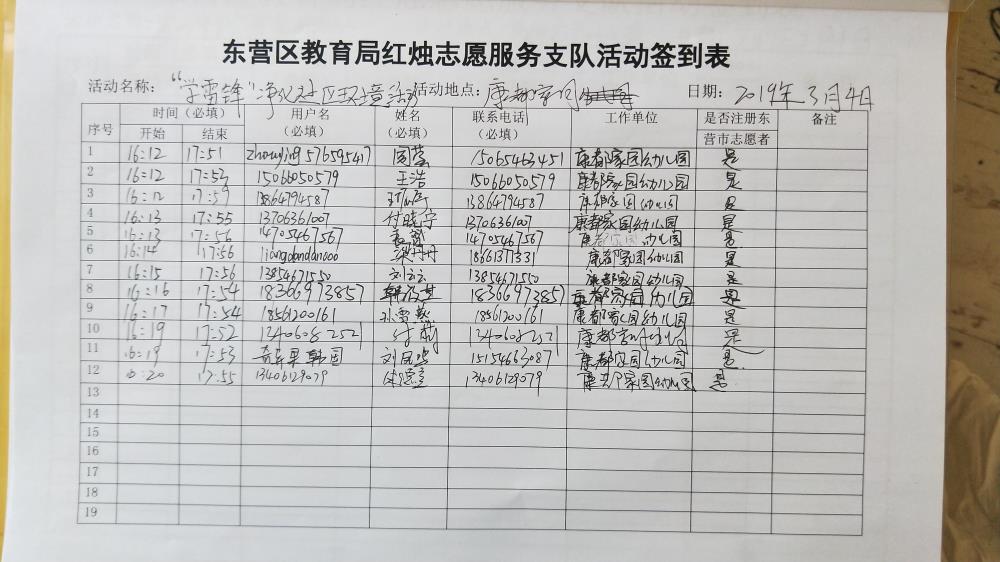 东营区教育局红烛志愿服务支队活动签到表
活动名称：“学雷锋”净化社区环境活动 活动地点：康都家园 日期：2019年3月4日
序号 时间（必填） 用户名（必填） 姓名（必填） 联系电话（必填） 工作单位 是否注册东营市志愿者 备注
开始 结束
1 16:12 17:51 zhouying576595417 周莹 15065463451 康都家园幼儿园 是
2 16:12 17:53 15066050579 王浩 15066050579 康都家园幼儿园 是
3 16:12 17:59 13864794587 13864794587 康都家园幼儿园 是
4 16:13 17:55 13706361007 付晓宇 13706361007 康都家园幼儿园 是
5 16:13 17:56 14705467567 14705467567 康都家园幼儿园 是
6 16:14 17:56 liangdandan000 梁丹丹 18661371331 康都家园幼儿园 是
7 16:15 17:56 13854671550 13854671550 康都家园幼儿园 是
8 16:16 17:54 18366973857 18366973857 康都家园幼儿园 是
9 16:17 17:54 18561200161 18561200161 康都家园幼儿园 是
10 16:19 17:52 康都家园幼儿园 是
11 16:19 17:53 15154663087 康都家园幼儿园 是
12 16:20 17:55 13406129079 13406129079 康都家园幼儿园 是
13
14
15
16
17
18
19